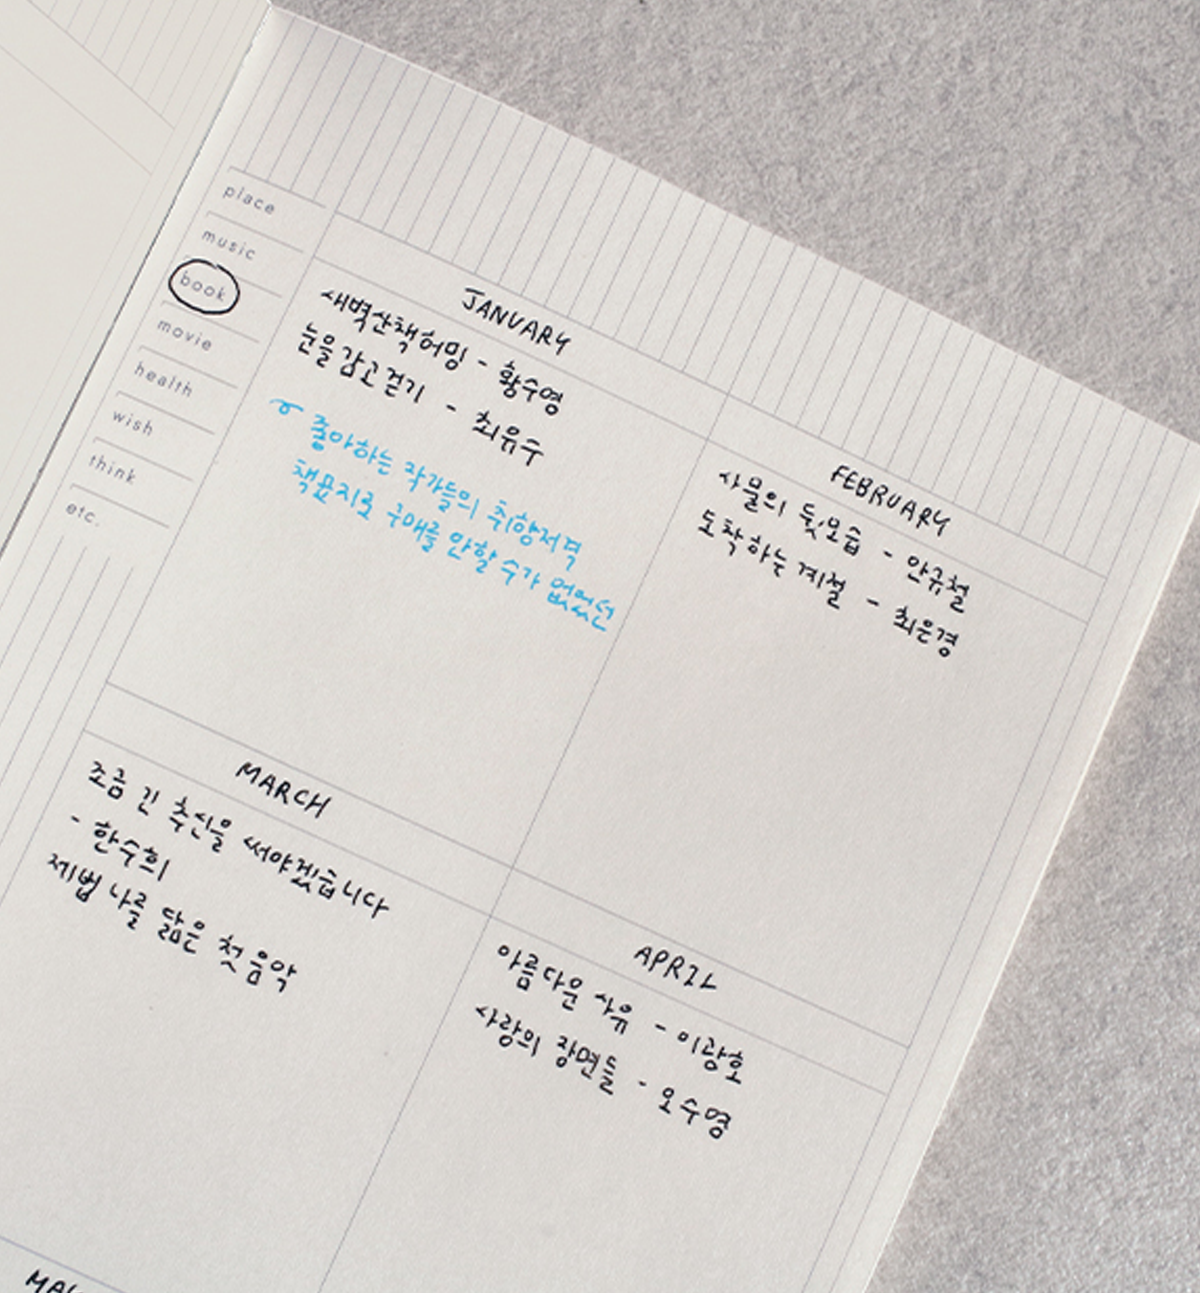 place
music
book
movie
health
wish
think
etc.
JANUARY
새벽산책허밍 - 황수영
눈을감고걷기 - 최유수
좋아하는 작가들의 취향저격
책표지로 구매를 안할 수가 없었던
FEBRUARY
사물의 뒷모습 - 안규철
도착하는 계절 - 최은경
MARCH
조금 긴 추신을 써야겠습니다
- 한수희
제법 나를 닮은 첫 음악
APRIL
아름다운 사유 - 이광호
사랑의 장면들 - 오수영